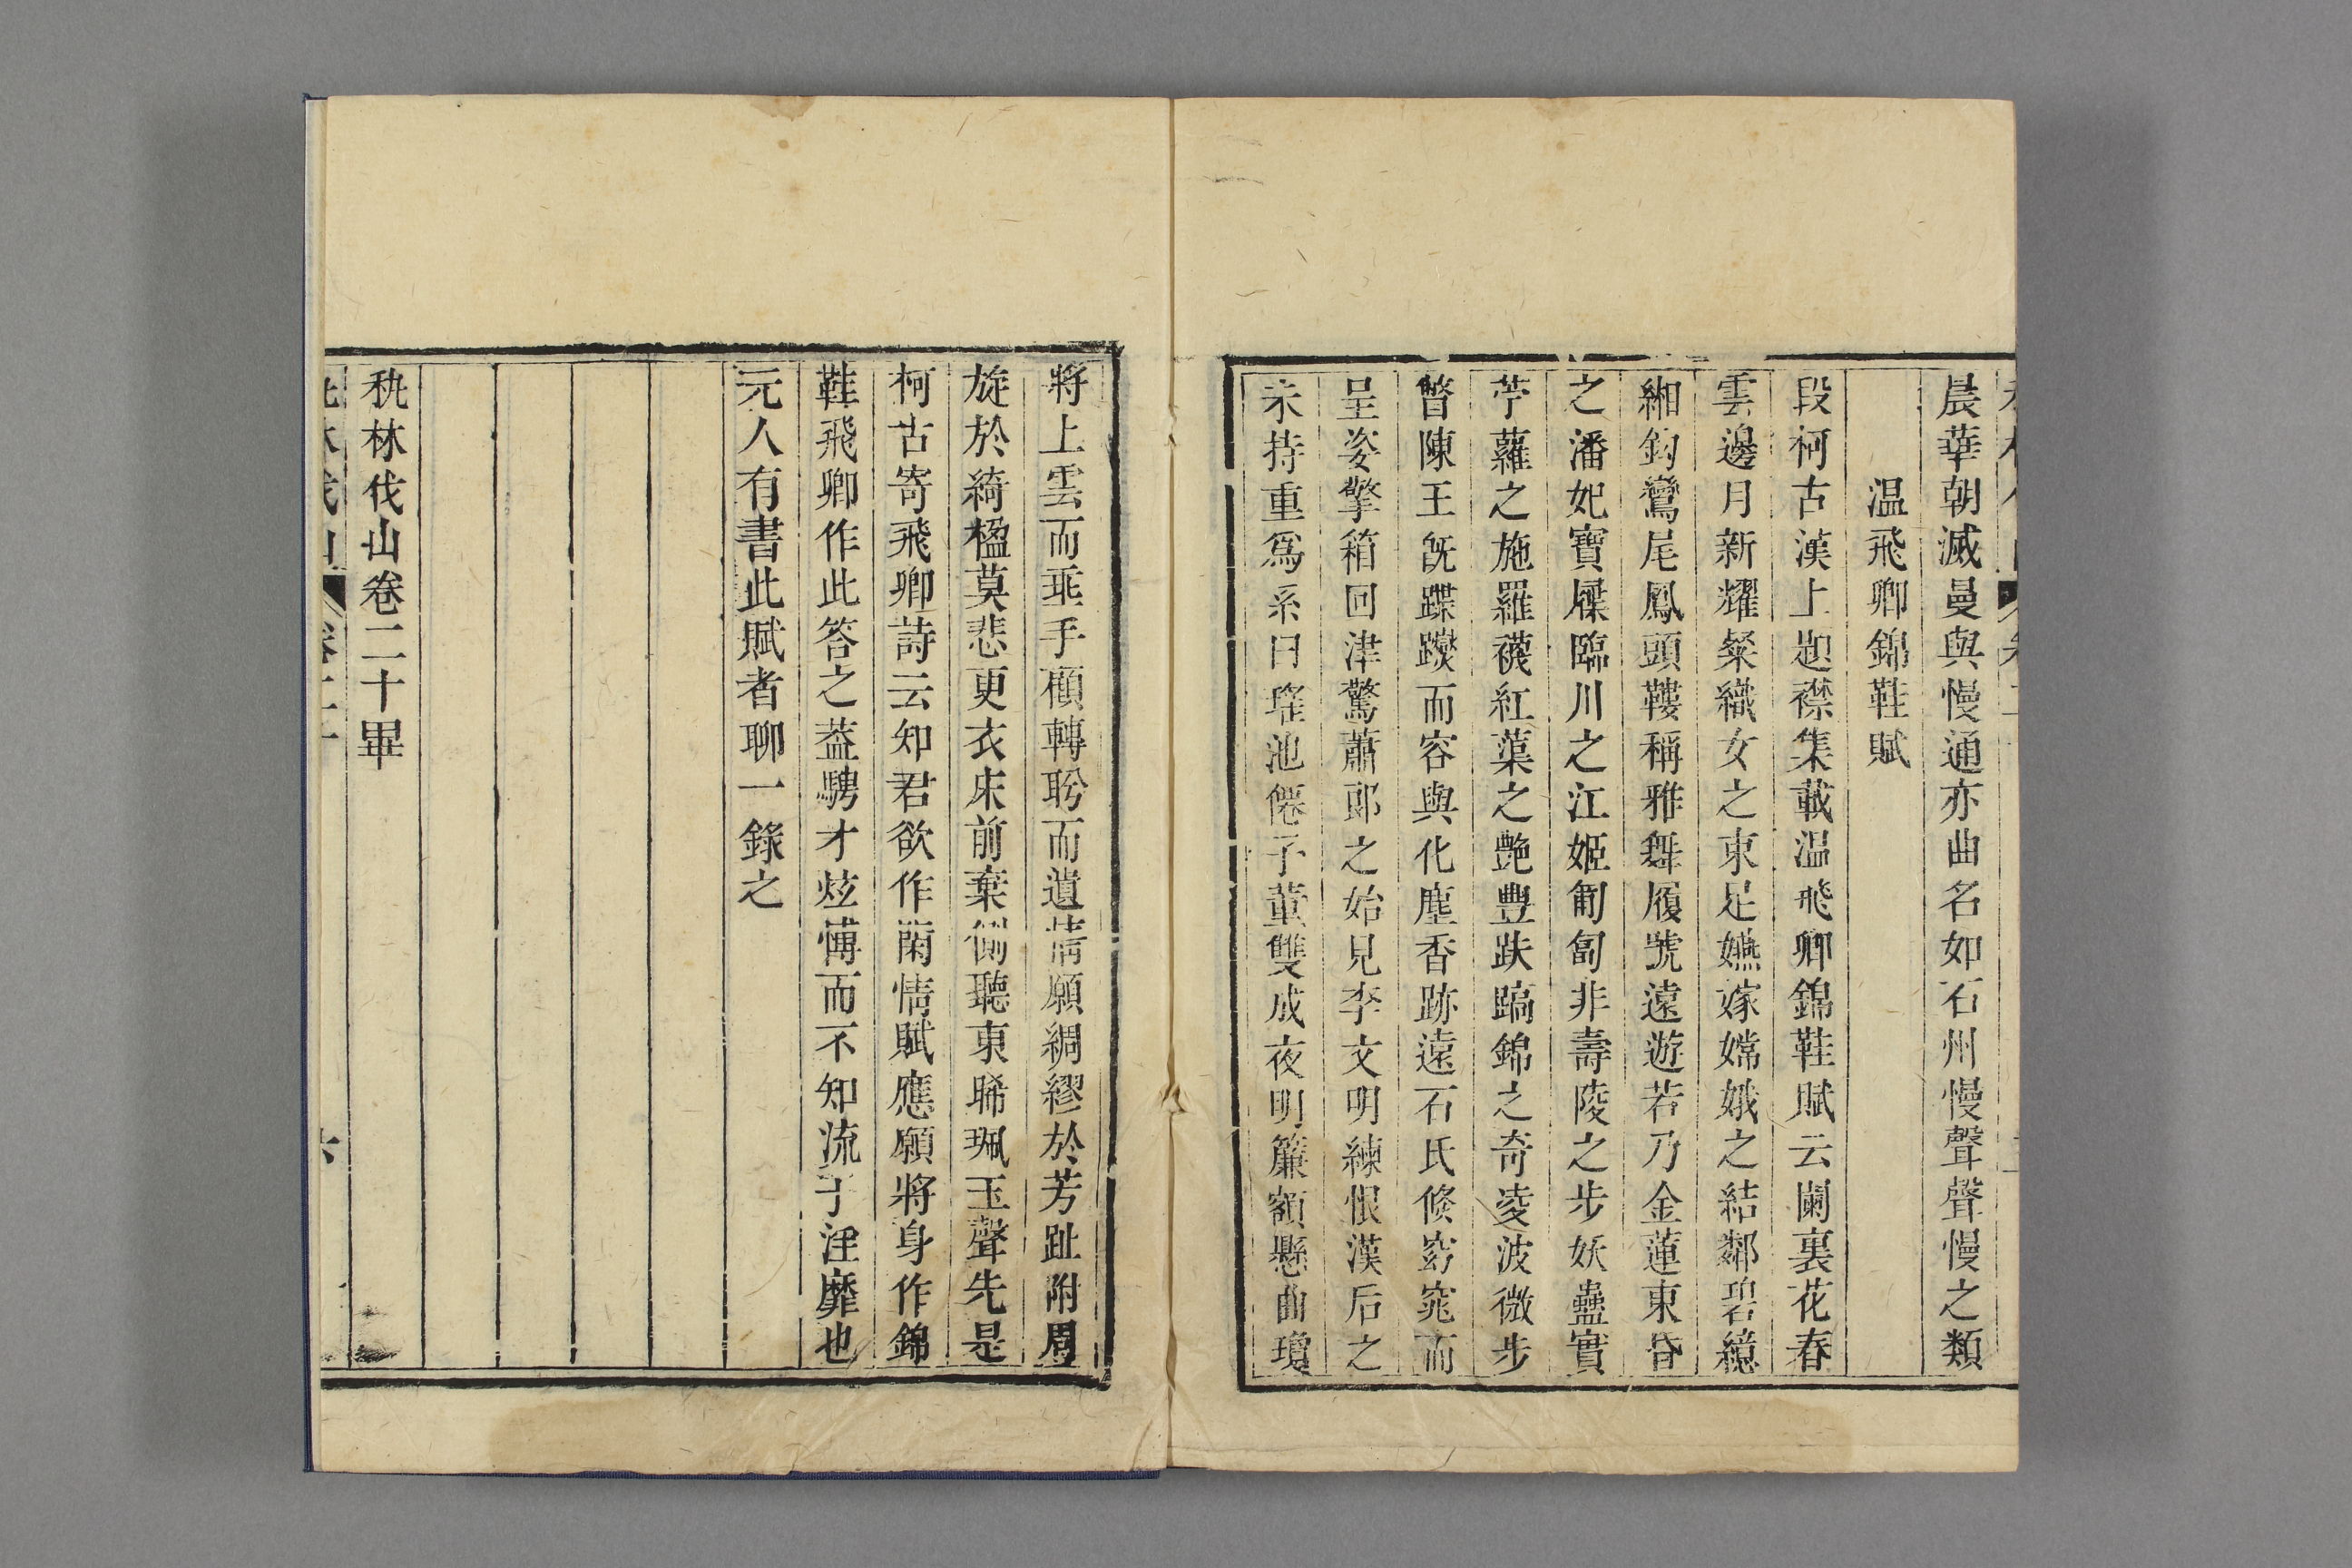 晨華朝滅曼與慢通亦曲名如石州慢聲聲慢之類
温飛卿錦鞋賦
段柯古漢上題襟集載温飛卿錦鞋賦云闌裏花春
雲邊月新耀粲織女之束足嬿嫁嫦娥之結鄰碧繶
緗鈎鸞尾鳳頭鞻稱雅舞履號遠遊若乃金蓮東昏
之潘妃寶屧臨川之江姬匍匐非壽陵之步妖蠱實
苧蘿之施羅襪紅蕖之艶豐趺蹢錦之奇凌波微步
瞥陳王旣蹀躞而容與化塵香跡逺石氏倏窈窕而
呈姿擎箱回津驚蕭郎之始見李文明練恨漢后之
未持重爲系曰瑤池僊子董雙成夜明簾額懸曲瓊
將上雲而乖手顧轉盻而遺情願綢繆於芳趾附周
旋於綺楹莫悲更衣床前棄側聽東晞珮玉聲先是
柯古寄飛卿詩云知君欲作閑情賦應願將身作錦
鞋飛卿作此答之葢騁才炫慱而不知流于淫靡也
元人有書此賦者聊一錄之
秇林伐山卷二十畢